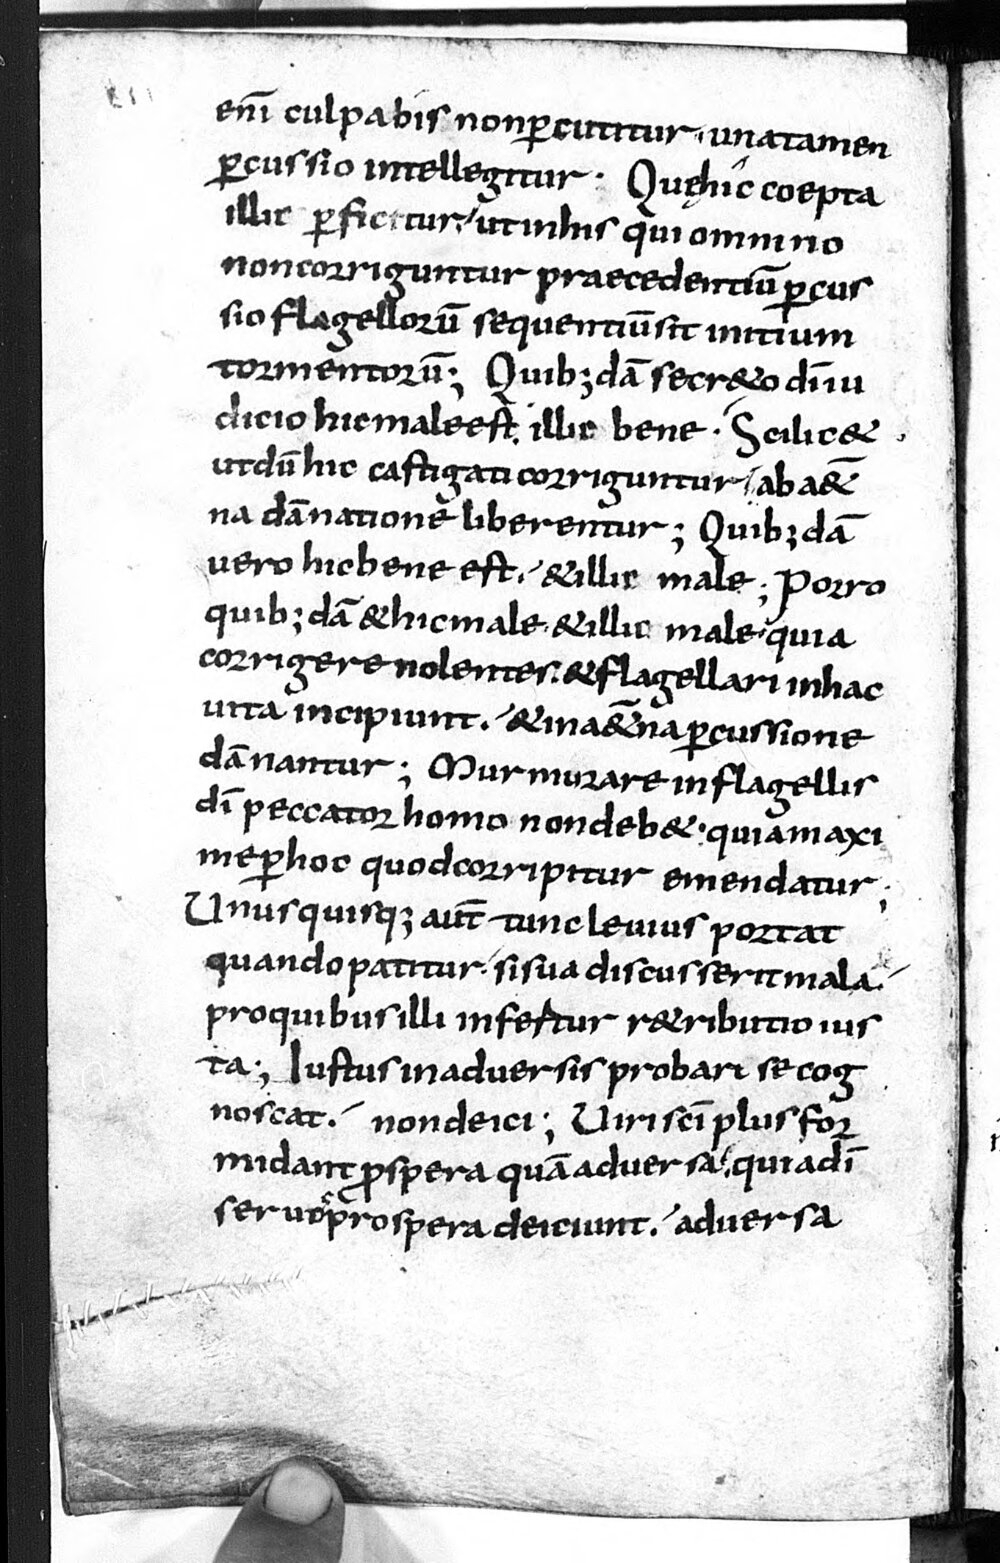 enī culpa bis non ꝑcutitur· una tamen
ꝑcussio intellegitur· Quę hic coepta
illic ꝑficitur· ut in his qui omnino
non corriguntur praecedentiū ꝑcus
sio flagellorū sequentiū sit initium
tormentorū; Quib;dā secr&o dī iu
dicio hic male est, illic bene· Scilic&
ut dū hic castigati corriguntur, ab a&̄
na dānatione liberentur; Quib;dā
uero hic bene est. &illic male; Porro
quib;dā &hic male· &illic male· quia
corrigere nolentes. &flagellari in hac
uita incipiunt. &in a&̄na ꝑcussione
dānantur; Murmurare in flagellis
dī peccator homo non deb&· quia maxi
me ꝑ hoc quod corripitur emendatur;
Unusquisq; aut̄ tunc leuius portat
quando patitur. si sua discusserit mala.
pro quibus illi infertur r&ributio ius
ta; Iustus in aduersis probari se cog
noscat. non deici; Uiri scī plus for
midant ꝓspera quā aduersa, quia dī
seruos prospera deiciunt. aduersa